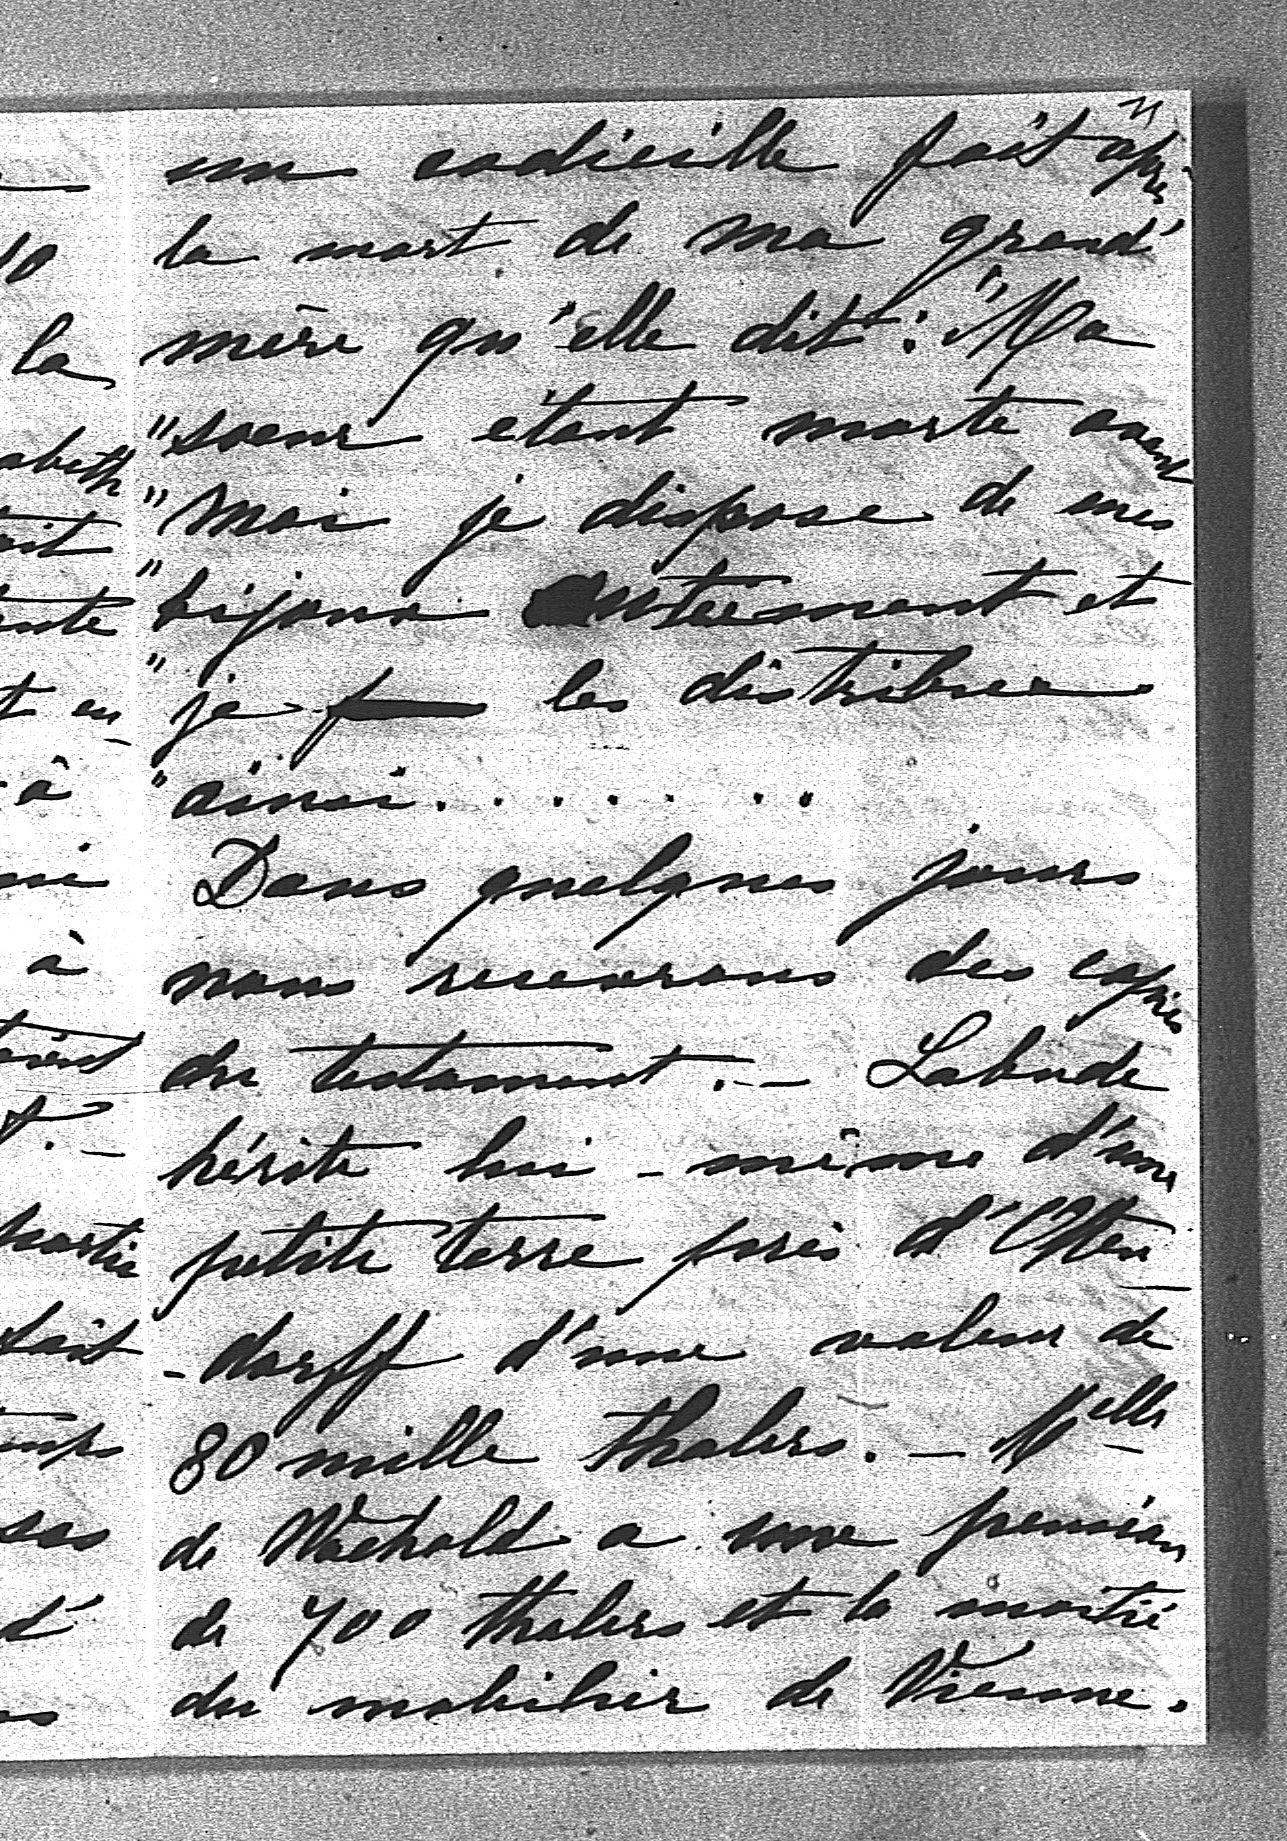 un codicille fait après
la mort de ma grand'
mère qu'elle dit: "Ma
"soeur étant morte avant
"moi je dispose de mes
"bijoux autrement et
"je les distribue
"ainsi . . . . . . .
Dans quelques jours
nous recevrons des copies
du testament. — Labude
hérite lui-même d'une
petite terre près d'Otten-
-dorff d'une valeur de
80 mille thalers. — Melle
de Wachold a une pension
de 700 thalers et la moitié
du mobilier de Vienne.